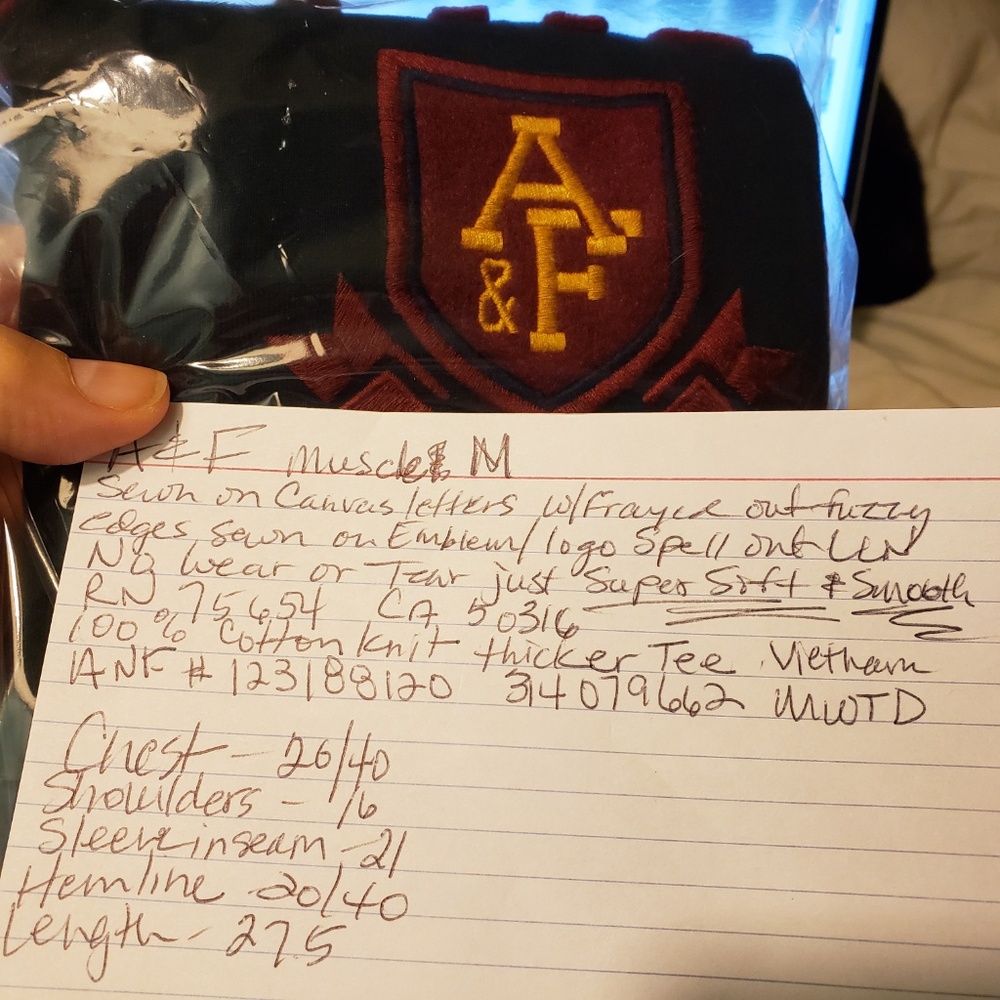 A
& F
A & F Muscle M
Sewn on Canvas letters w/ Frayed out fuzzy
edges sewn on Emblem/logo Spell out
No wear or Tear just Super Soft & Smooth
RN 75654 CA 50316
100% Cotton knit thicker Tee Vietnam
ANF # 123188120 314079662 MWTD
Chest - 20/40
Shoulders - 16
Sleeve inseam - 21
Hemline 20/40
Length - 27.5